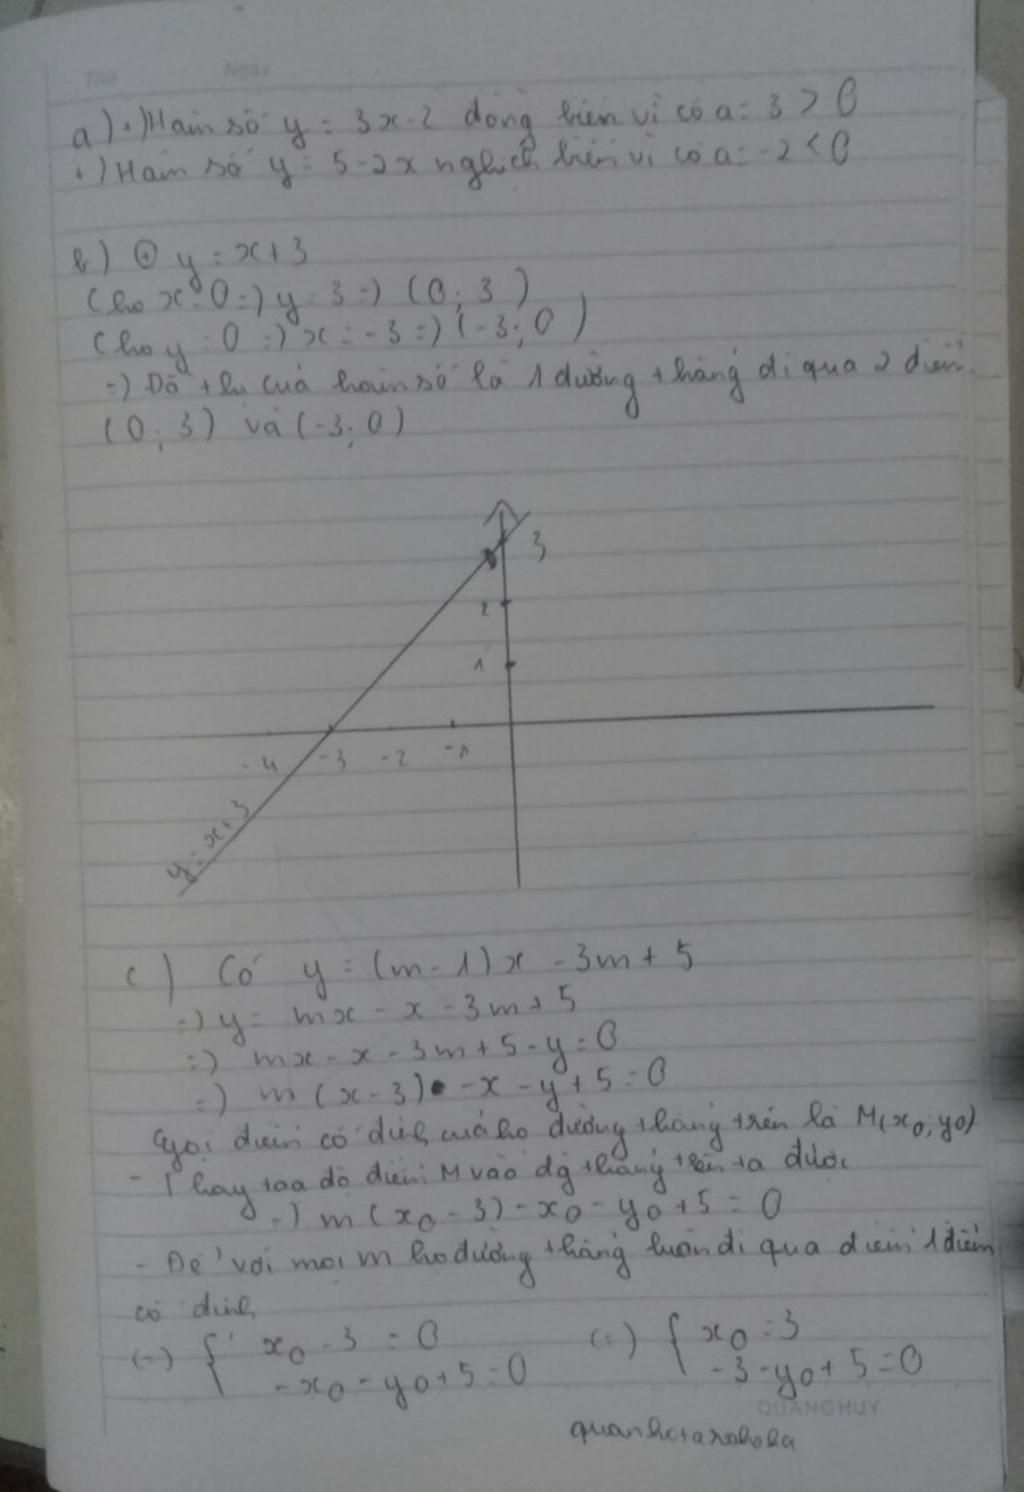 Thứ Ngày
a) .) Hàm số y = 3x-2 đồng biến vì có a = 3 > 0
.) Hàm số y = 5-2x nghịch biến vì có a = -2 < 0
b) ⊕ y = x+3
Cho x = 0 =) y = 3 =) (0; 3)
Cho y = 0 =) x = -3 =) (-3; 0)
=) Đồ thị của hàm số là 1 đường thẳng đi qua 2 điểm
(0; 3) và (-3; 0)
3
2
1
-4 -3 -2 -1
y = x+3
c) Có y = (m-1)x - 3m + 5
=) y = mx - x - 3m + 5
=) mx - x - 3m + 5 - y = 0
=) m(x-3) - x - y + 5 = 0
Gọi điểm cố định của họ đường thẳng trên là M(x0, y0)
- Thay tọa độ điểm M vào đg thẳng trên ta được
=) m(x0 - 3) - x0 - y0 + 5 = 0
- Để với mọi m họ đường thẳng luôn đi qua điểm 1 điểm
cố định
(=) { x0 - 3 = 0 (=) { x0 = 3
-x0 - y0 + 5 = 0 -3 - y0 + 5 = 0
QUANG HUY